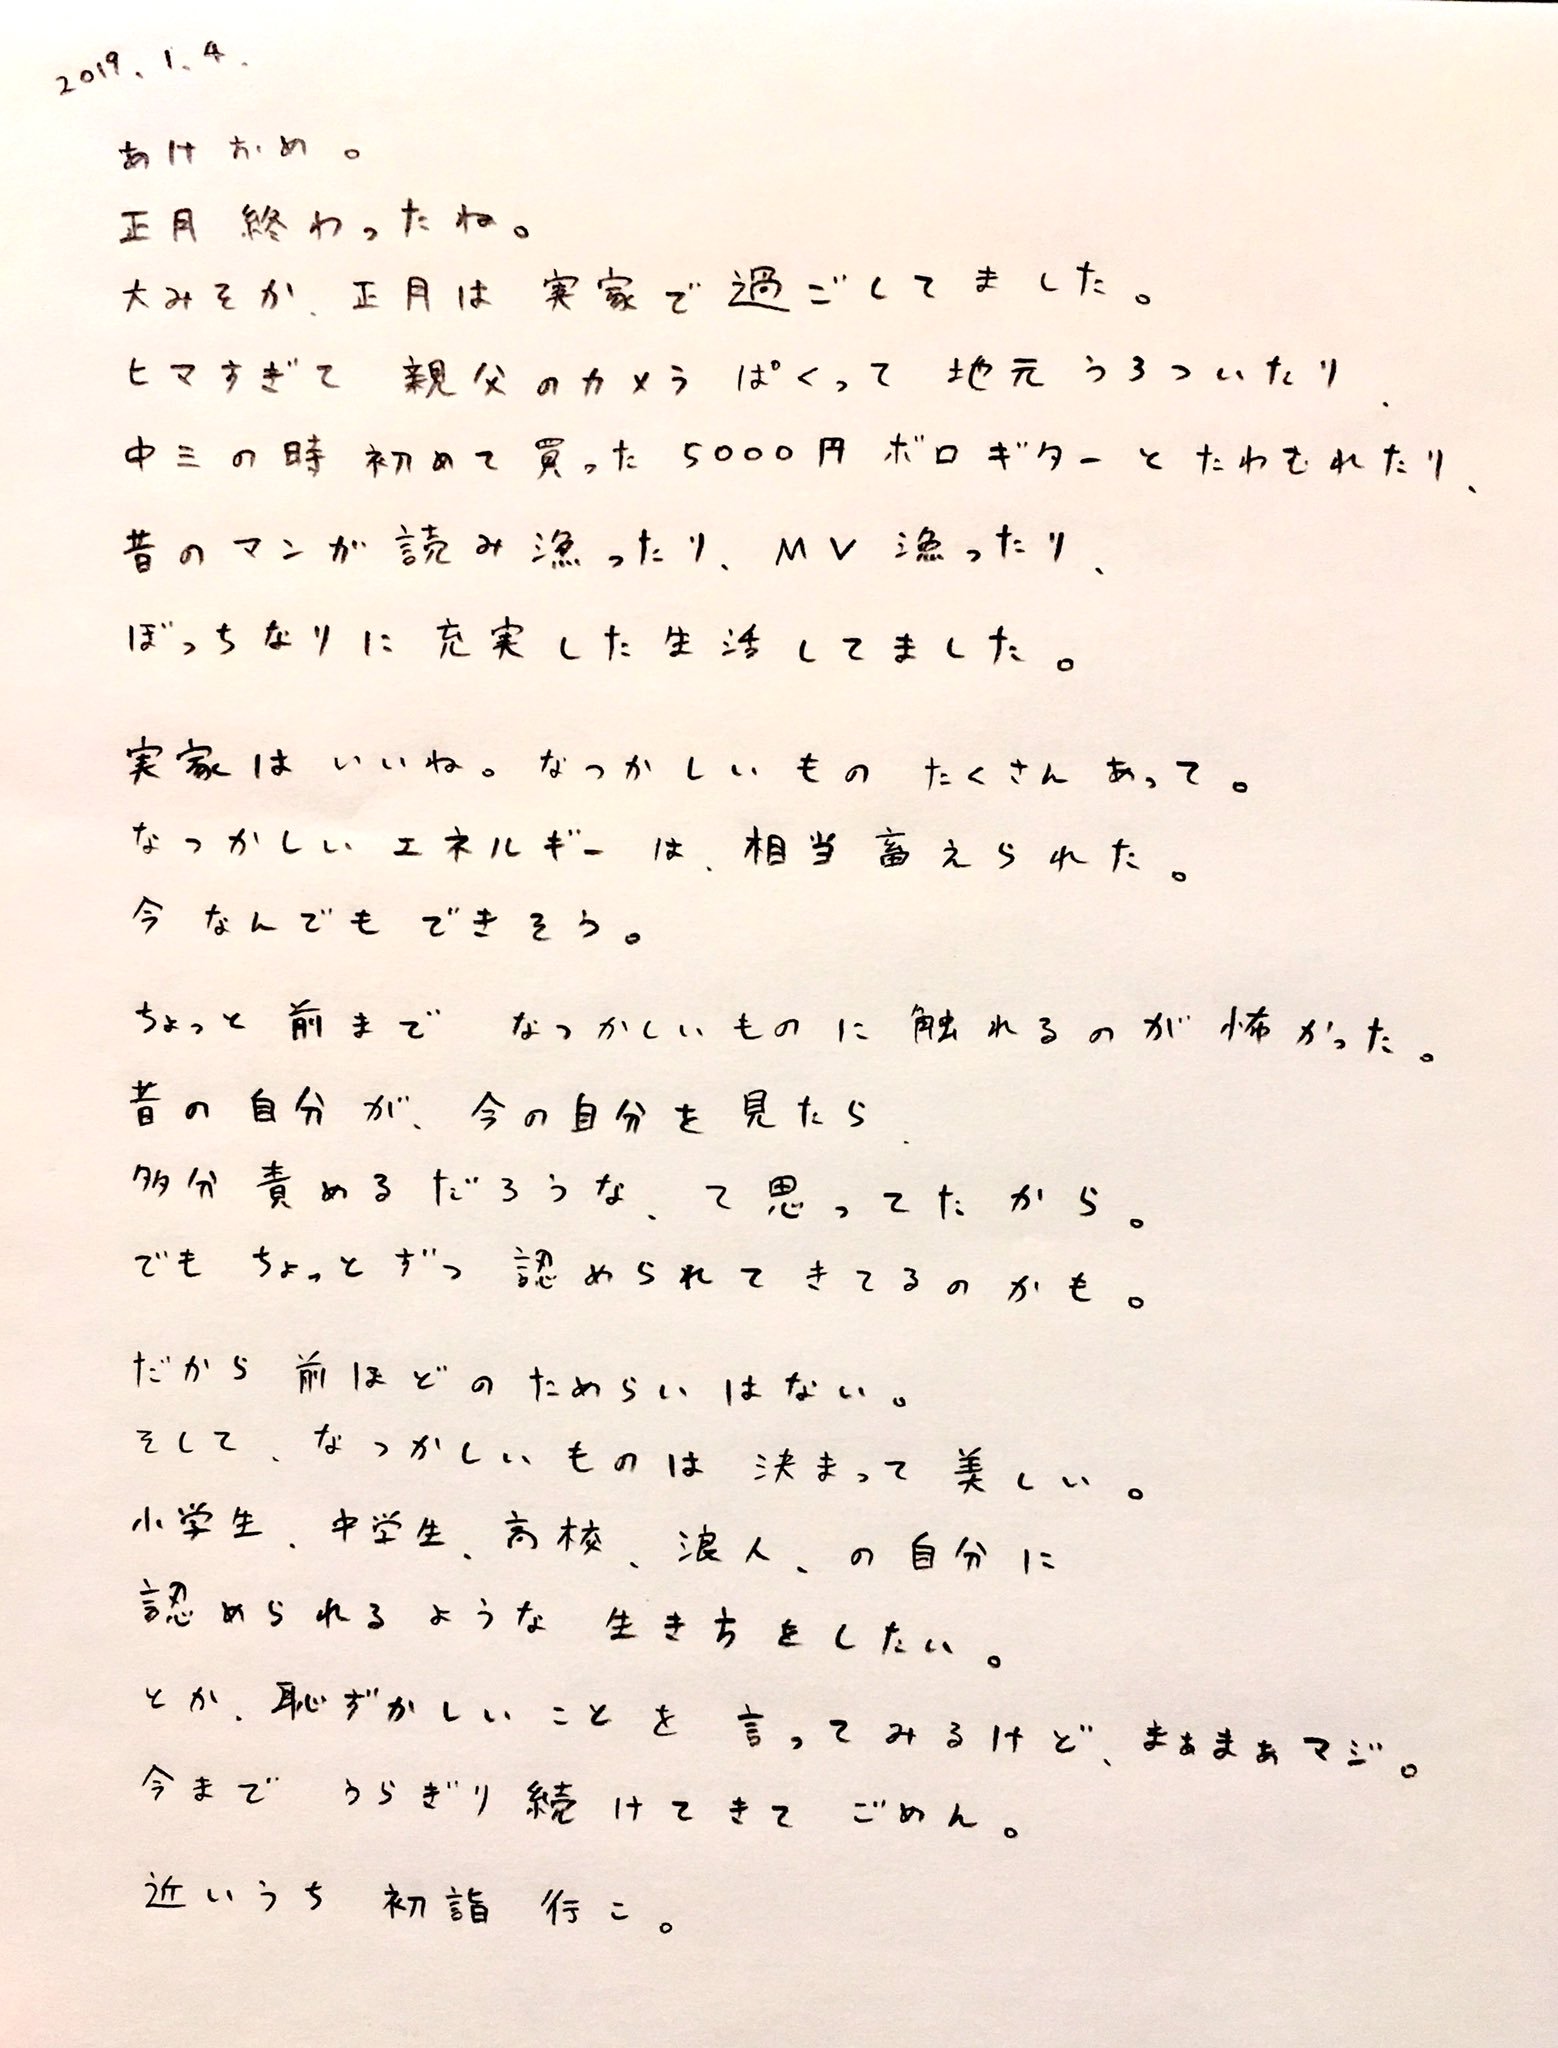 2019.1.4.
あけおめ。
正月終わったね。
大みそか、正月は 実家で過ごしてました。
ヒマすぎて 親父のカメラ ぱくって 地元うろついたり、
中三の時 初めて買った5000円ボロギターとたわむれたり、
昔のマンガ読み漁ったり、MV漁ったり、
ぼっちなりに充実した生活してました。
実家はいいね。なつかしいもの たくさんあって。
なつかしいエネルギーは、相当蓄えられた。
今なんでもできそう。
ちょっと前まで なつかしいものに触れるのが怖かった。
昔の自分が、今の自分を見たら、
多分責めるだろうな、て思ってたから。
でもちょっとずつ 認められてきてるのかも。
だから前ほどのためらいはない。
そして、なつかしいものは 決まって美しい。
小学生、中学生、高校、浪人、の自分に
認められるような 生き方をしたい。
とか、恥ずかしいことを 言ってみるけど、まぁまぁマジ。
今まで うらぎり続けてきて ごめん。
近いうち 初詣 行こ。